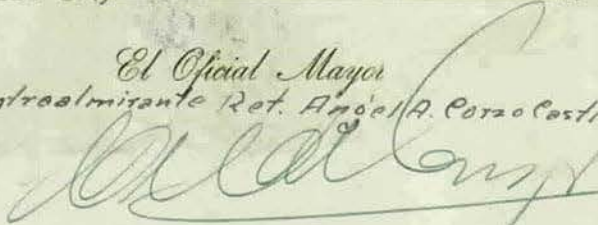 El Oficial Mayor
ntroalmirante Ret. Angel A. Corzo Casti